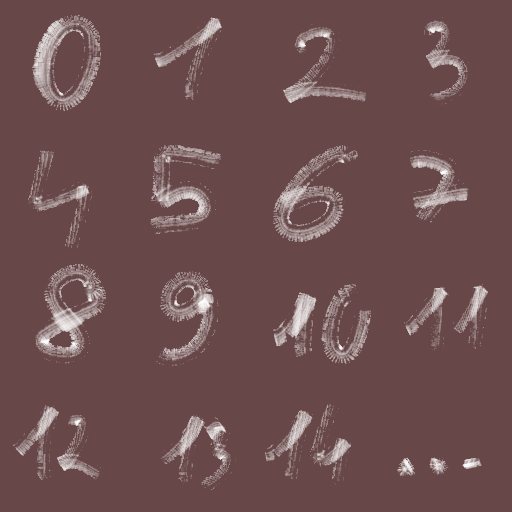 0 1 2 3
4 5 6 7
8 9 10 11
12 13 14 ...